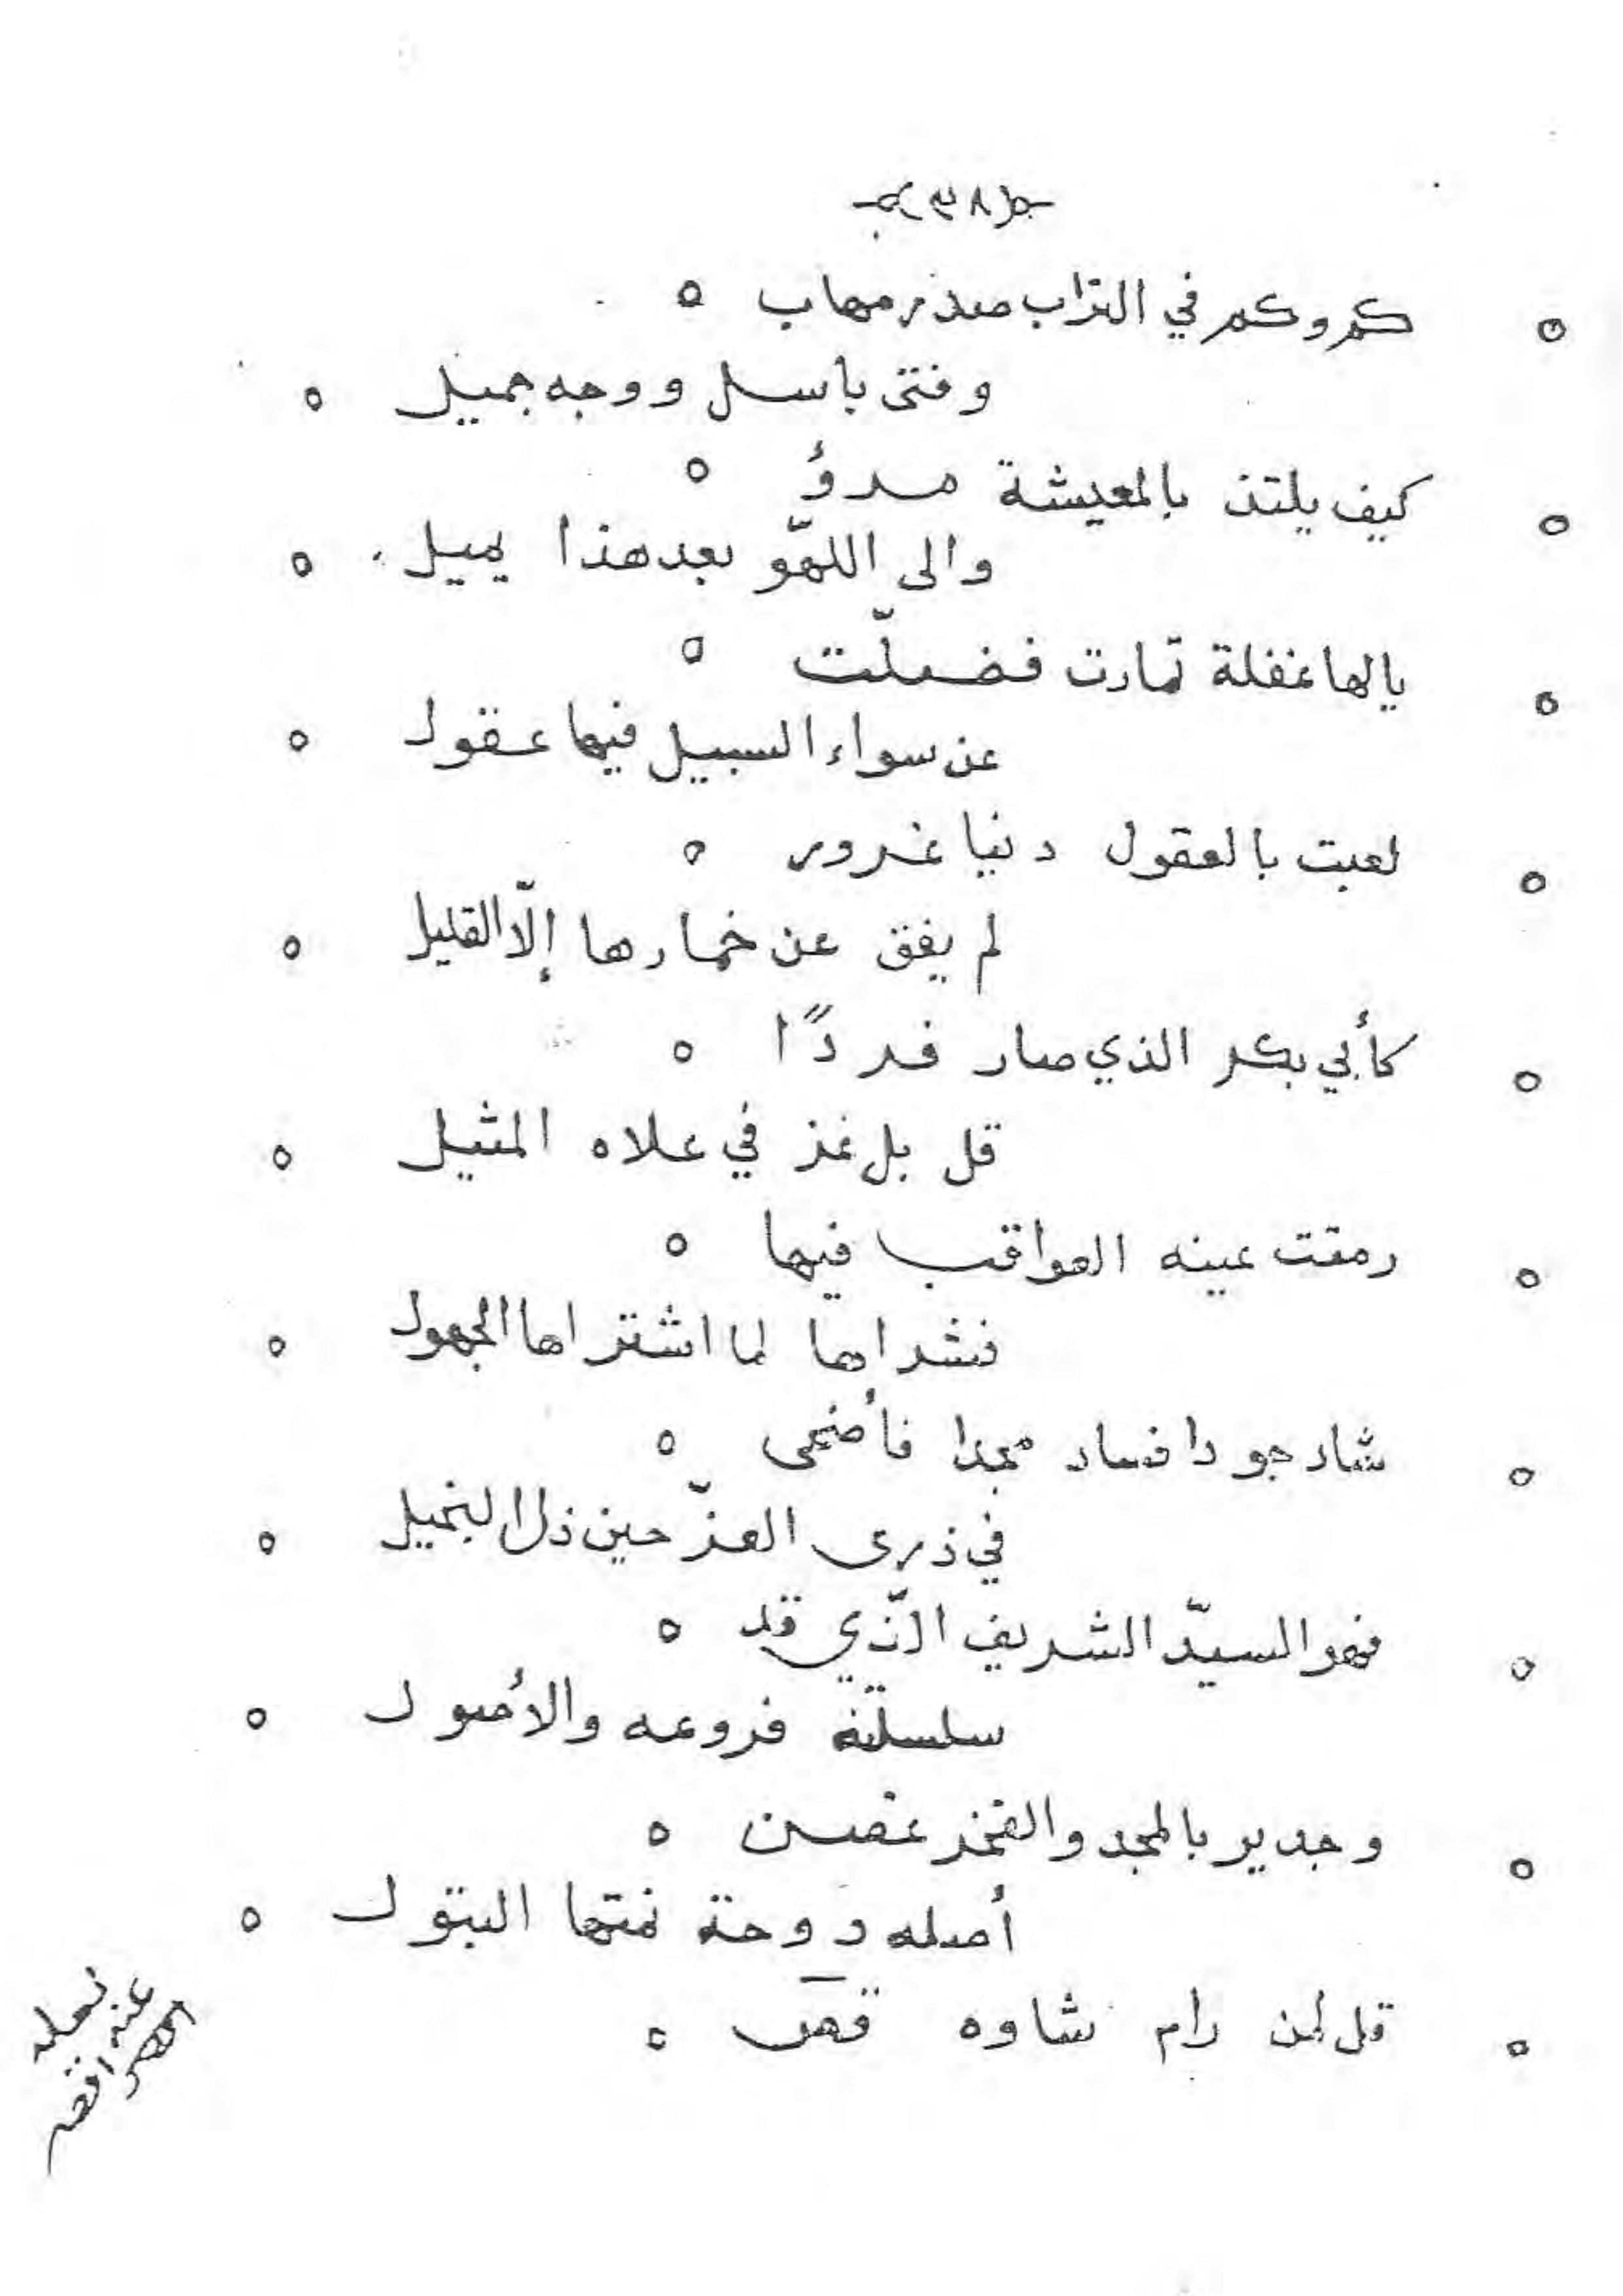 (٣٨)
كم وكم في التراب صدر مهاب
وفتى باسل ووجه جميل
كيف يلتذ بالمعيشة مرؤ
والى اللهّو بعد هذا يميل
يالها غفلة تمادت فضلّت
عن سواء السبيل فيها عقول
لعبت بالعقول دنيا غرور
لم يفق عن خمارها إلّا القليل
كأبي بكر الذي صار فردًا
قل بل عز في علاه المثيل
رمقت عينه العواقب فيها
فشراها لما اشتراها الجهول
شاد جودا فساد مجدا فأضحى
في ذرى العزّ حين ذل البخيل
فهو السيّد الشريف الّذي قد
سلسلته فروعه والأصول
وجدير بالمجد والفخر غصن
أصله دوحة نمتها البتول
قل لمن رام شاوه قصر
لعله
عنه